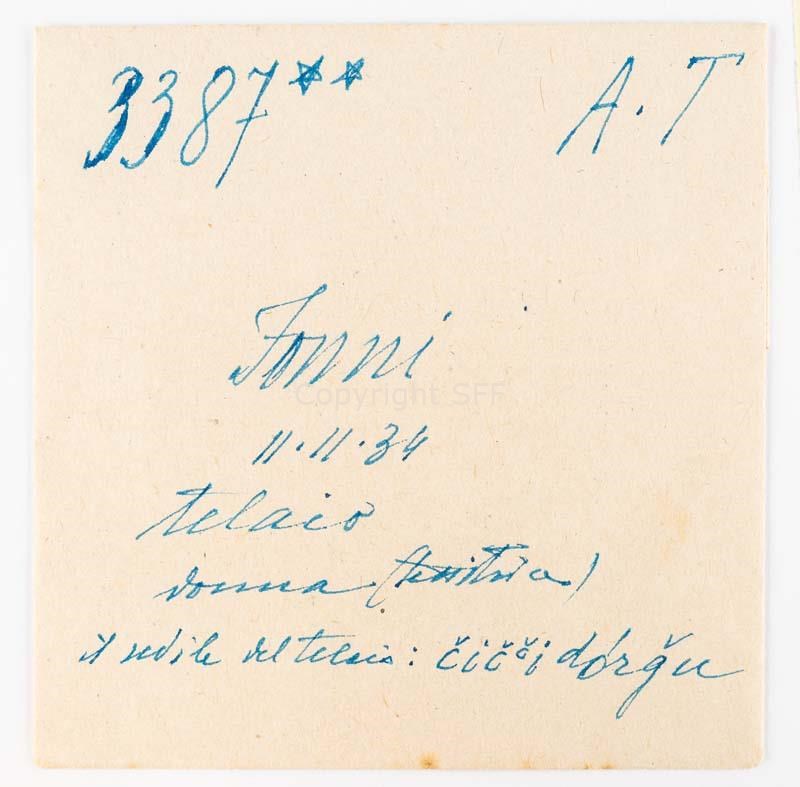 3387** A.T
Fonni
Copyright SFF
11.11.34
telaio
donna (tessitrice)
il sedile del telaio: čičči dórğu